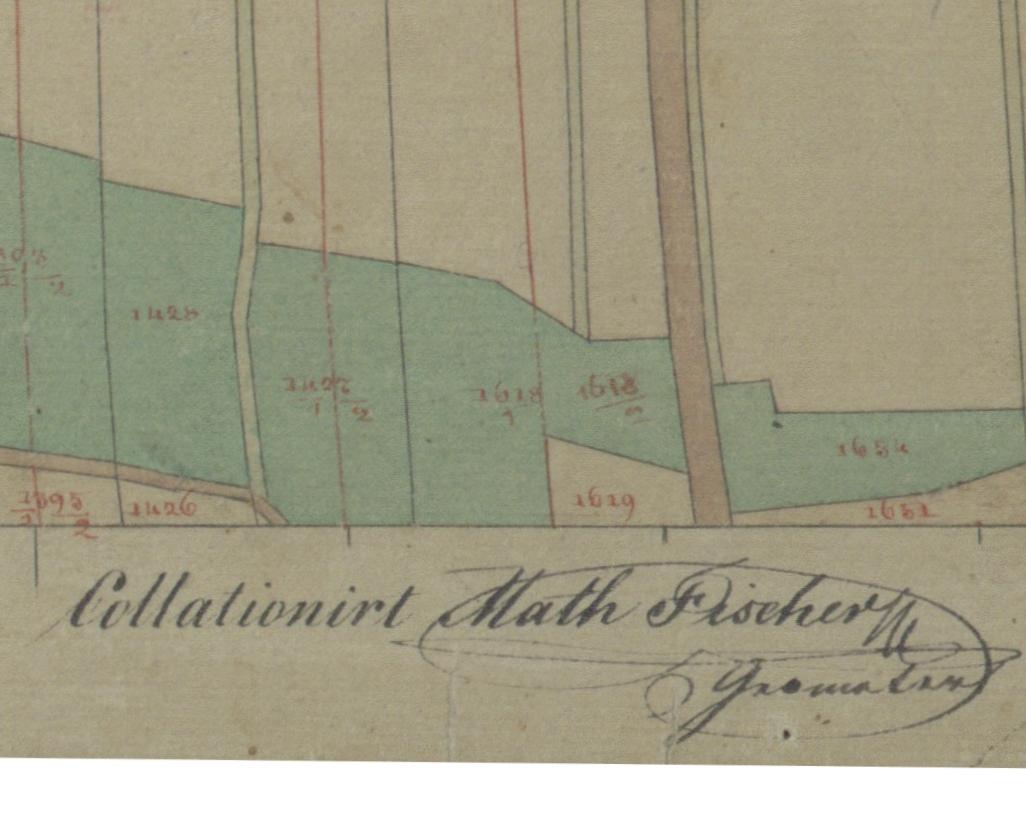 1428
1618
1
1618
2
1654
1426
1619
1651
Collationirt Math Fischer
Geometer